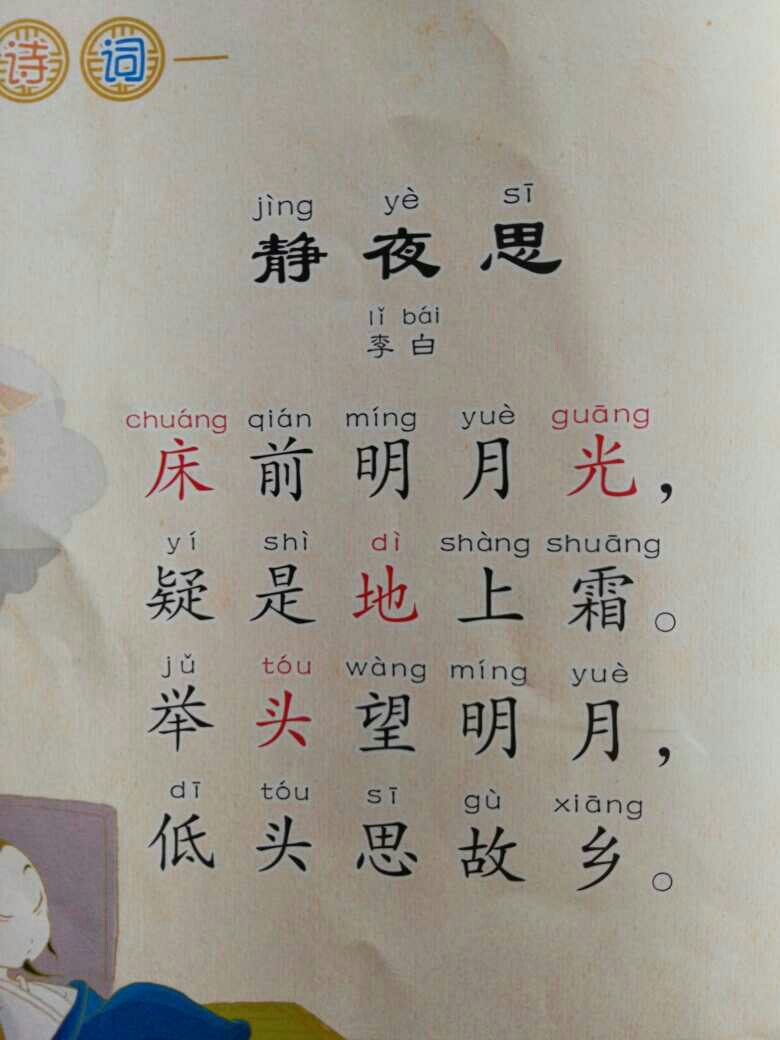 诗 词
jìng yè sī
静夜思
lǐ bái
李白
chuáng qián míng yuè guāng
床前明月光，
yí shì dì shàng shuāng
疑是地上霜。
jǔ tóu wàng míng yuè
举头望明月，
dī tóu sī gù xiāng
低头思故乡。